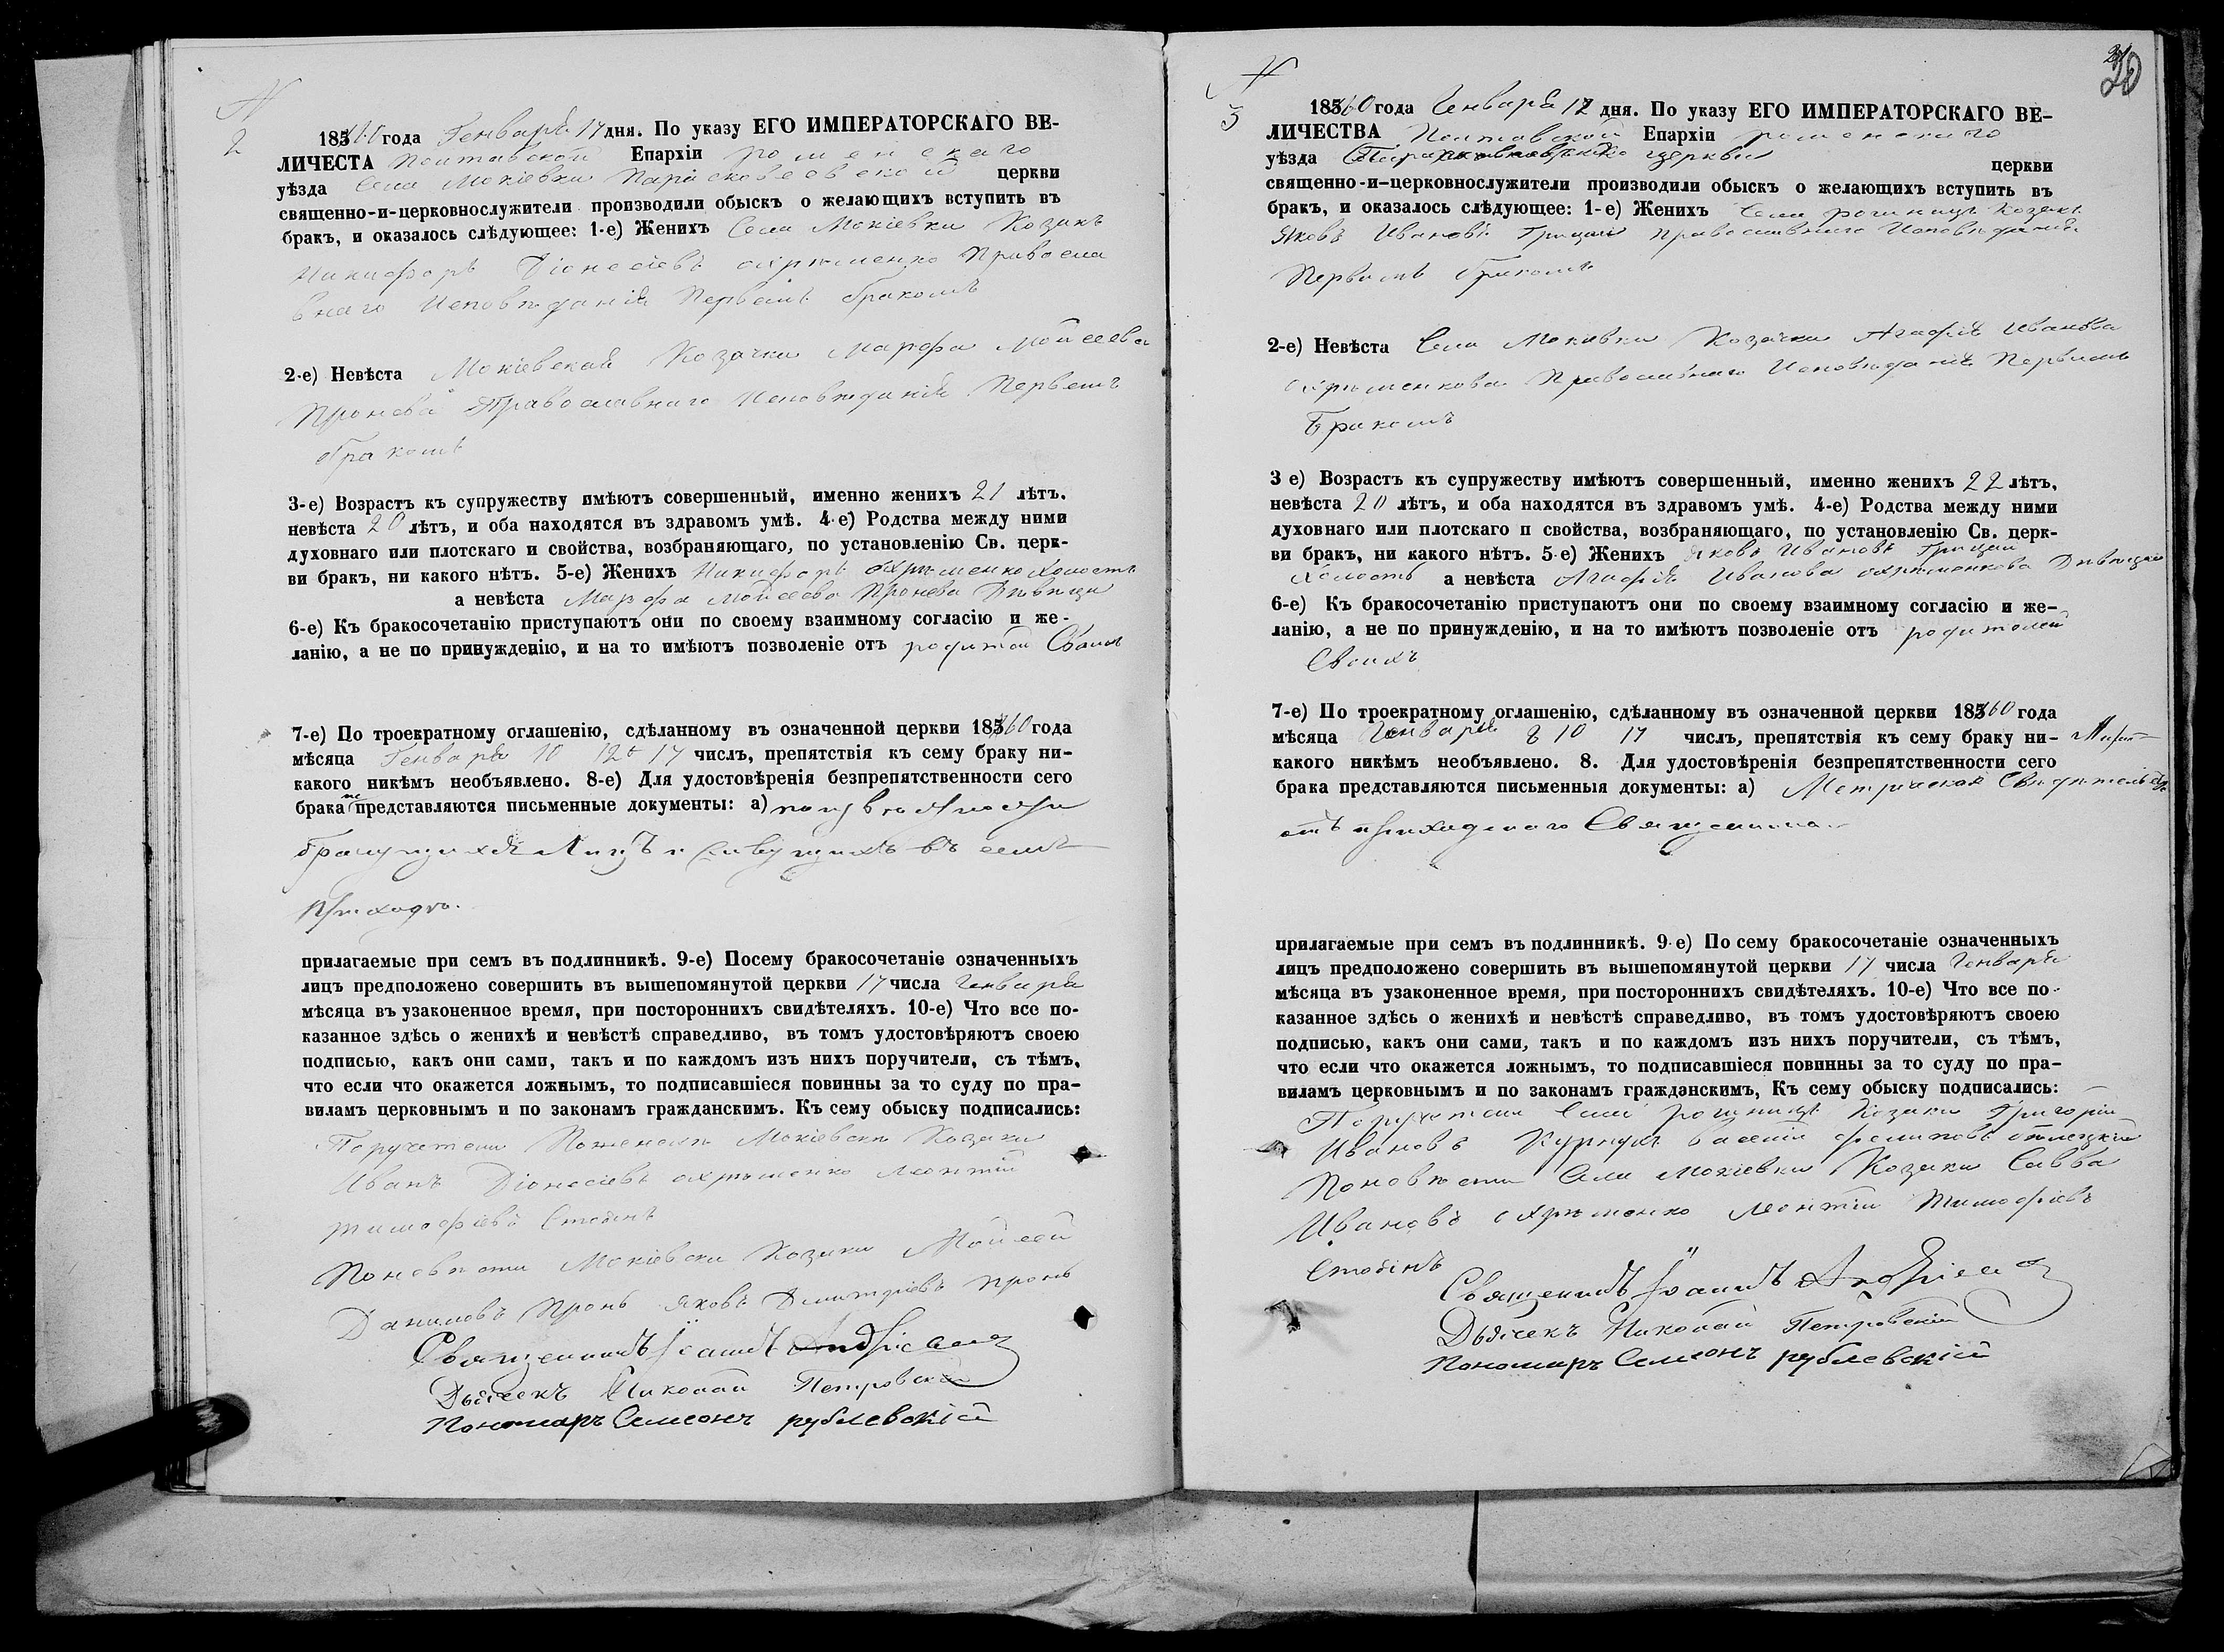 N
2
1860 года Генваря 17 дня. По указу ЕГО ИМПЕРАТОРСКАГО ВЕ-
ЛИЧЕСТА Полтавской Епархіи роменскаго
уѣзда Села Мокіевки Параскевеевской церкви
священно-и-церковнослужители производили обыскъ о желающихъ вступить въ
бракъ, и оказалось слѣдующее: 1-е) Женихъ Села Мокіевки Козакъ
Никифоръ Діонесіевъ охрѣменко Правосла
внаго Исповѣданія Первымъ бракомъ
2-е) Невѣста Мокіевская Козачка Марфа Мойсеева
Пронева Православнаго Исповѣданія Первымъ
бракомъ
3-е) Возрастъ къ супружеству имѣютъ совершенный, именно женихъ 21 лѣтъ,
невѣста 20 лѣтъ, и оба находятся въ здравомъ умѣ. 4-е) Родства между ними
духовнаго или плотскаго и свойства, возбраняющаго, по установленію Св. церк-
ви бракъ, ни какого нѣтъ. 5-е) Женихъ Никифоръ охрѣменко холостъ
а невѣста Марфа Мойсеева Пронева Дѣвица
6-е) Къ бракосочетанію приступаютъ они по своему взаимному согласію и же-
ланію, а не по принужденію, и на то имѣютъ позволеніе отъ
7-е) По троекратному оглашенію, сдѣланному въ означенной церкви 1860 года
мѣсяца Генваря 10 17 числъ, препятствія къ сему браку ни-
какого никѣмъ необъявлено. 8-е) Для удостовѣренія безпрепятственности сего
брака не представляются письменные документы: а)
Приходѣ.
прилагаемые при семъ въ подлинникѣ. 9-е) Посему бракосочетаніе означенныхъ
лицъ предположено совершить въ вышепомянутой церкви 17 числа Генваря
мѣсяца въ узаконенное время, при постороннихъ свидѣтеляхъ. 10-е) Что все по-
казанное здѣсь о женихѣ и невѣстѣ справедливо, въ томъ удостовѣряютъ своею
подписью, какъ они сами, такъ и по каждомъ изъ нихъ поручители, съ тѣмъ,
что если что окажется ложнымъ, то подписавшіеся повинны за то суду по пра-
виламъ церковнымъ и по законамъ гражданскимъ. Къ сему обыску подписались:
Поручители Поженихѣ Мокіевски Козаки
Иванъ Діонесіевъ охрѣменко Леонтій
тимофіевъ
Поневѣсти Мокіевски Козаки Мойсей
Даниловъ Пронь Яковъ Дмитріевъ Пронь
Священникъ Іоаннъ
Дьячекъ Николай Петровскій
Пономарь Симеонъ рублевскій
N
3
20
1860 года Генваря 17 дня. По указу ЕГО ИМПЕРАТОРСКАГО ВЕ-
ЛИЧЕСТВА Полтавской Епархіи роменскаго
уѣзда церкви
церкви
священно-и-церковнослужители производили обыскъ о желающихъ вступить въ
бракъ, и оказалось слѣдующее: 1-е) Женихъ Села Козакъ
Яковъ Ивановъ Грицай Православнаго Исповѣданія
Первымъ бракомъ
2-е) Невѣста Села Мокивки Козачка Агафія Иванова
охрѣменкова Православнаго Исповѣданія Первымъ
Бракомъ
3 е) Возрастъ къ супружеству имѣютъ совершенный, именно женихъ 22 лѣтъ,
невѣста 20 лѣтъ, и оба находятся въ здравомъ умѣ. 4-е) Родства между ними
духовнаго или плотскаго п свойства, возбраняющаго, по установленію Св. церк-
ви бракъ, ни какого нѣтъ. 5-е) Женихъ Яковъ Ивановъ Грицай
Холостъ а невѣста Агафія Иванова охрѣменкова Дѣвица
6-е) Къ бракосочетанію приступаютъ они по своему взаимному согласію и же-
ланію, а не по принужденію, и на то имѣютъ позволеніе отъ родителей
Своихъ
7-е) По троекратному оглашенію, сдѣланному въ означенной церкви 1860 года
мѣсяца Генваря 8 10 17 числъ, препятствія къ сему браку ни-
какого никѣмъ необъявлено. 8. Для удостовѣренія безпрепятственности сего
брака представляются письменныя документы: а) Метрическая
отъ приходского Священника
прилагаемые при семъ въ подлинникѣ. 9-е) По сему бракосочетаніе означенныхъ
лицъ предположено совершить въ вышепомянутой церкви 17 числа Генваря
мѣсяца въ узаконенное время, при постороннихъ свидѣтеляхъ. 10-е) Что все по-
казанное здѣсь о женихѣ и невѣстѣ справедливо, въ томъ удостовѣряютъ своею
подписью, какъ они сами, такъ и по каждомъ изъ нихъ поручители, съ тѣмъ,
что если что окажется ложнымъ, то подписавшіеся повинны за то суду по пра-
виламъ церковнымъ и по законамъ гражданскимъ, Къ сему обыску подписались:
Поручители Села Козаки Григорій
Ивановъ Василій
Поневѣсти Села Мокіевки Козаки Савва
Ивановъ охрѣменко Леонтій Тимофіевъ
Священникъ Іоаннъ
Дьячекъ Николай Петровскій
Пономарь Симеонъ рублевскій